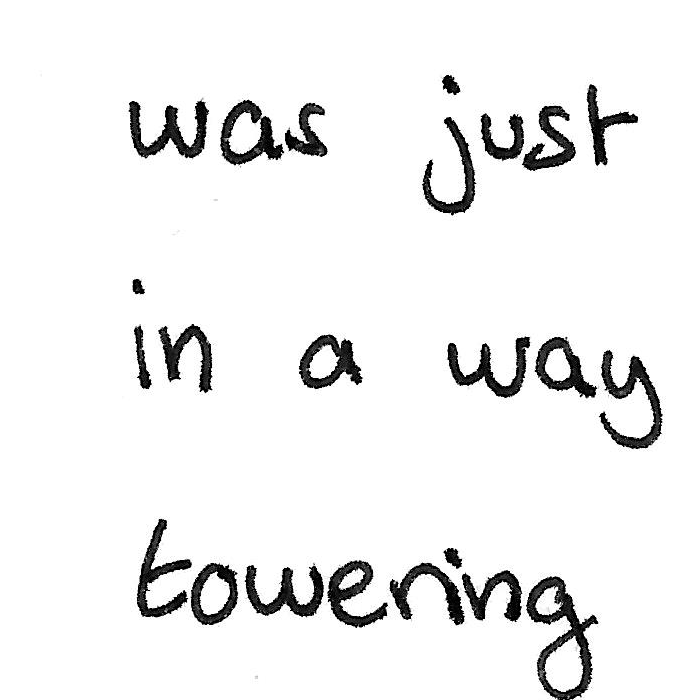 was just
in a way
towering